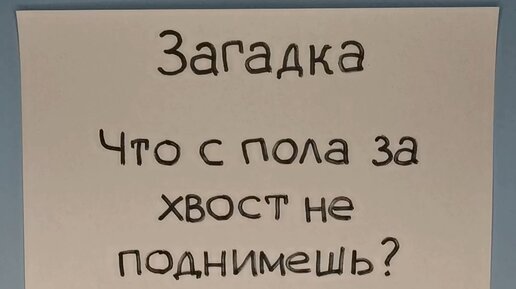 Загадка
Что с пола за
хвост не
поднимешь?